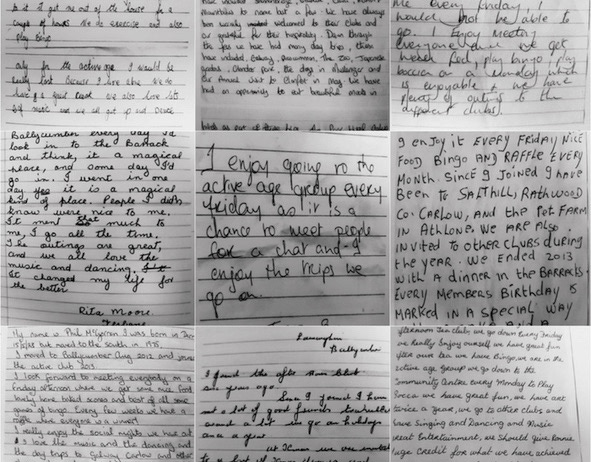 is it get me out of the house for a
couple of hours. We do exercise and also
play Bingo
only for the active age I would be
really lost because I love
have a great we also love lots
of music and we all get up and Dance
to name but a few. We have always
been warmly welcomed to their clubs and
are grateful for their hospitality. Down through
the years we have had many day trips, these
have included, Galway, the Zoo, Japanese
Gardens, the dogs in Mullingar and
our Annual visit to We have
had an opportunity to eat beautiful meals in
me every Friday, I
would not be able to
go. I Enjoy Meeting
Everyone we get
well fed, play bingo, play
boccia on a Monday which
is enjoyable & we have
plenty of outings to the
different clubs.
Ballycumber every day I'd
look in to the Barrack
and think, it a magical
place, and some day I'd
go in. I went in one
day yes it is a magical
kind of place. People I didn't
know were nice to me.
It ment so much to
me, I go all the time.
The outings are great,
and we all love the
music and dancing.
It changed my life for
the better
Rita Moore.
I enjoy going to the
active age group every
friday as it is a
chance to meet people
for a chat and I
enjoy the trips we
go on.
I enjoy it EVERY FRIDAY NICE
FOOD BINGO AND RAFFLE EVERY
MONTH. SINCE I JOINED I HAVE
BEEN TO SALTHILL, RATHWOOD
CO. CARLOW, AND THE PET FARM
IN ATHLONE. WE ARE ALSO
INVITED TO OTHER CLUBS DURING
THE YEAR. WE ENDED 2013
WITH A DINNER IN THE BARRACKS.
EVERY MEMBERS BIRTHDAY IS
MARKED IN A SPECIAL WAY
My name is Phil I was born in
but moved to the South in 1975.
I moved to Ballycumber Aug 2012 and joined
the active club 2013.
I look forward to meeting everybody on a
Friday afternoon where we get some nice food
lovely home baked scones and best of all some
games of bingo. Every few weeks we have a
raffle where everyone is a winner!
I really enjoy the social nights we have out
I love the music and the dancing and
the day trips to Galway Carlow and other
Ballycumber
I found the after noon Club
six years ago.
Since I joined I have
met a lot of good friends
around a lot we go on holidays
once a year
afternoon Tea club, we go down Every Friday
we Really Enjoy ourself we have great fun
after our tea we have Bingo, we are in the
active age Group we go down to the
Community Centre every Monday to Play
Bocca we have great fun, we have
twice a year, we go to other clubs and
have Singing and Dancing and Music
Great Entertainment, we should give Ronnie
huge Credit for what we have achieved